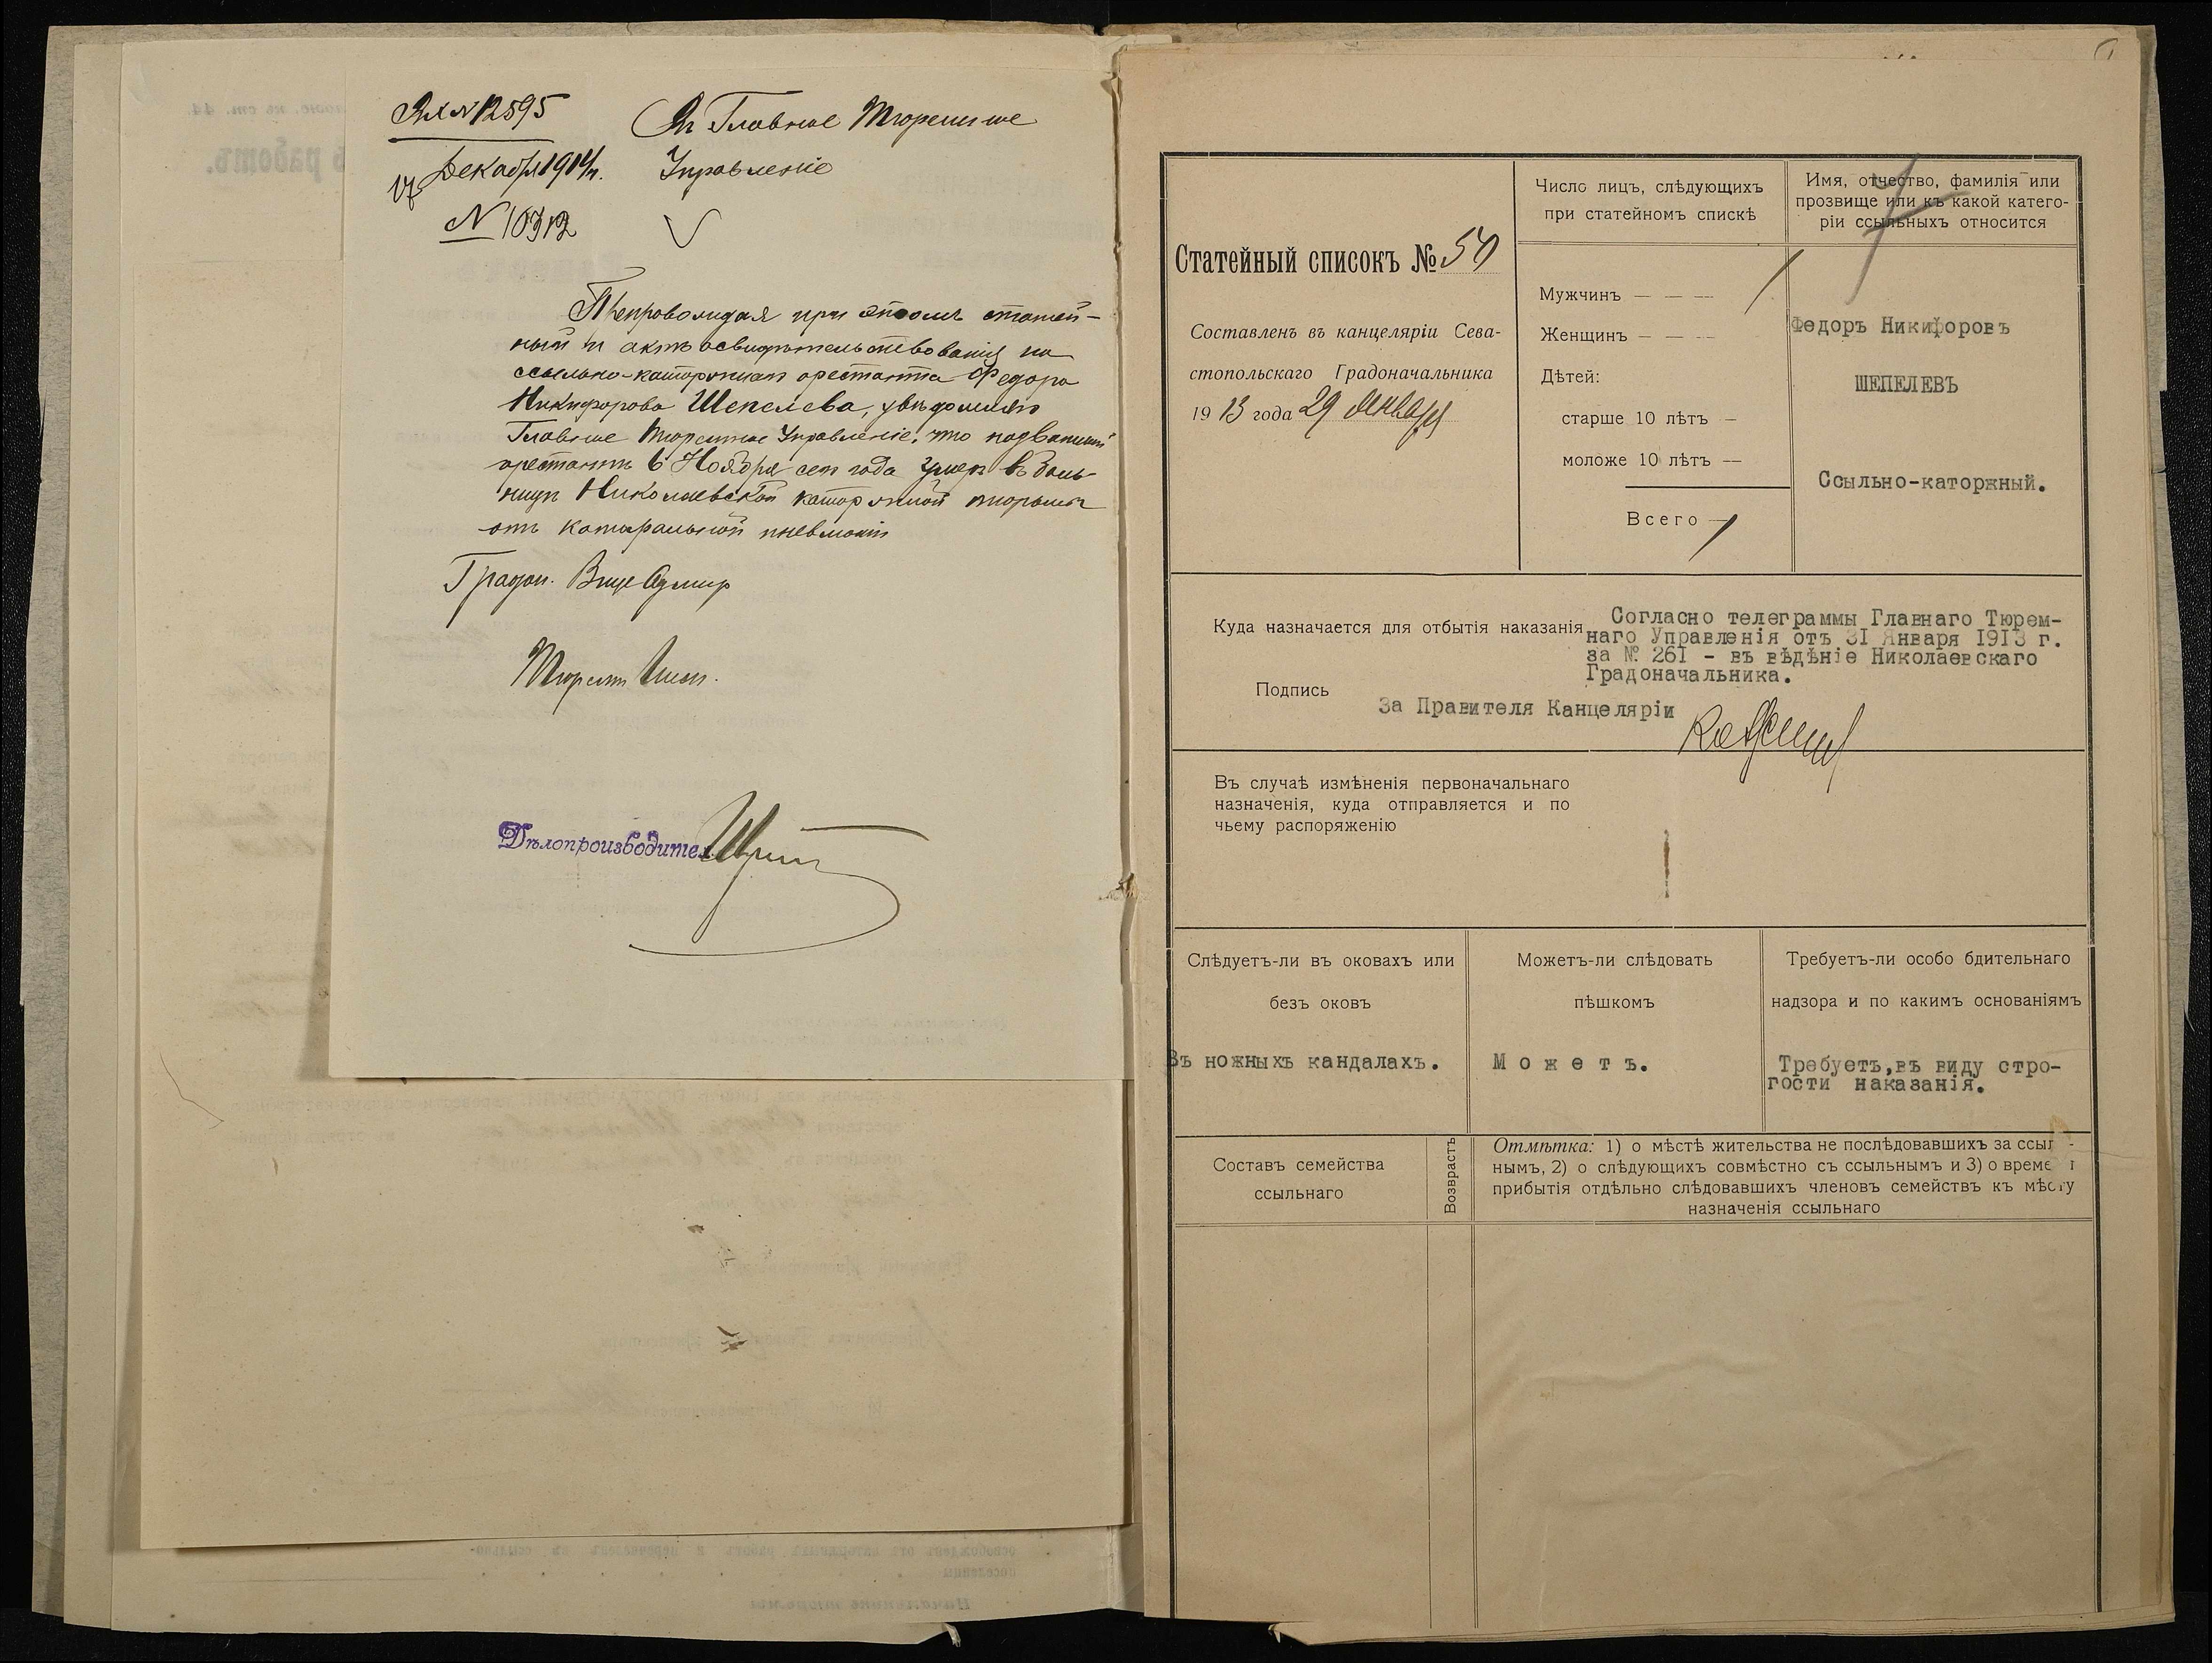 Вх №12595
17 Декабря 1914 г.
№ 10312
Въ Главное Тюремное
Управленіе
Препровождая при этомъ статей-
ный и актъ освидѣтельствованія на
ссыльно-каторжнаго арестанта Федора
Никифорова Шепелева, увѣдомляю
Главное Тюремное Управленіе, что названный
арестантъ 6 Ноября сего года умеръ въ боль-
ницѣ Николаевской каторжной тюрьмы
отъ катаральной пневмоніи
Градон. Вице Адмир
Тюремн Инсп.
Дѣлопроизводител
Статейный списокъ №
Составленъ въ канцеляріи Сева-
стопольскаго Градоначальника
1913 года 29 Января
Число лицъ, слѣдующихъ
при статейномъ спискѣ
Мужчинъ — — — 1
Женщинъ — — —
Дѣтей:
старше 10 лѣтъ —
моложе 10 лѣтъ —
Всего — 1
Имя, отчество, фамилія или
прозвище или къ какой катего-
ріи ссыльныхъ относится
Федоръ Никифоровъ
ШЕПЕЛЕВЪ
Ссыльно-каторжный.
Куда назначается для отбытія наказанія
Согласно телеграммы Главнаго Тюрем-
наго Управленія отъ 31 Января 1913 г.
за № 261 - въ вѣдѣніе Николаевскаго
Градоначальника.
Подпись
За Правителя Канцеляріи
Въ случаѣ измѣненія первоначальнаго
назначенія, куда отправляется и по
чьему распоряженію
Слѣдуетъ-ли въ оковахъ или
безъ оковъ
Въ ножныхъ кандалахъ.
Можетъ-ли слѣдовать
пѣшкомъ
Можетъ.
Требуетъ-ли особо бдительнаго
надзора и по какимъ основаніямъ
Требуетъ,въ виду стро-
гости наказанія.
Составъ семейства
ссыльнаго
Возрастъ
Отмѣтка: 1) о мѣстѣ жительства не послѣдовавшихъ за ссыл-
нымъ, 2) о слѣдующихъ совмѣстно съ ссыльнымъ и 3) о времени
прибытія отдѣльно слѣдовавшихъ членовъ семействъ къ мѣсту
назначенія ссыльнаго